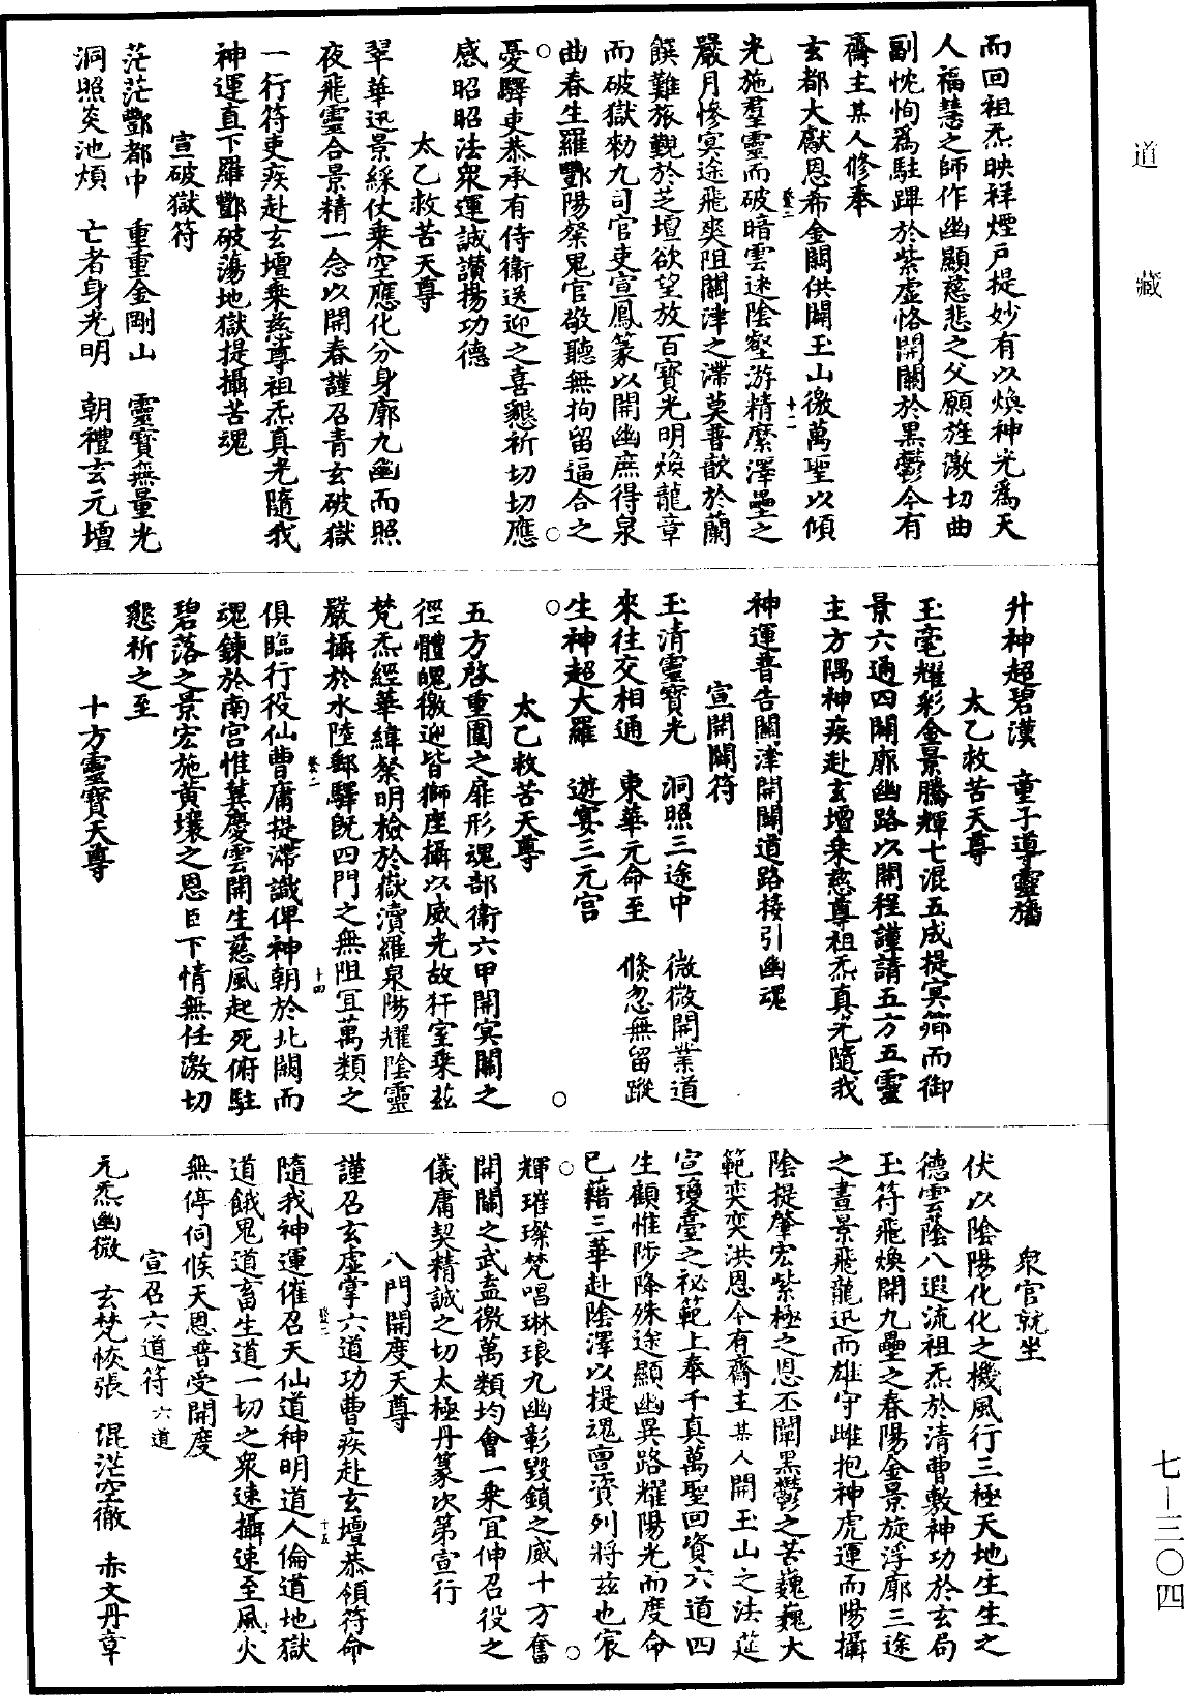 道藏
七—三〇四
而回祖炁映祥煙戶提妙有以煥神光爲天
人福慧之師作幽顯慈悲之父願旌激切曲
副忱恂爲駐蹕於紫虛恪開關於黑鬱今有
齋主某人修奉
玄都大獻恩希金闕供開玉山徼萬聖以傾
光施羣靈而破暗雲迷陰壑游精縻澤壘之
嚴月慘冥途飛爽阻關津之滯莫普歆於蘭
饌難旅覲於芝壇欲望放百寶光明煥龍章
而破獄勑九司官吏宣鳳篆以開幽庶得泉
曲春生羅酆陽粲鬼官敬聽無拘留逼合之
憂驛吏恭承有侍衞送迎之喜懇祈切切應
感昭昭法衆運誠讚揚功德
太乙救苦天尊
翠華迅景綵仗乗空應化分身廓九幽而照
夜飛靈合景精一念以開春謹召青玄破獄
一行符吏疾赴玄壇乗慈尊祖炁真光隨我
神運直下羅酆破蕩地獄提攝苦魂
宣破獄符
茫茫酆都中　重重金剛山　靈寳無量光
洞照炎池煩　亡者身光明　朝禮玄元壇
升神超碧漢　童子導靈旛
太乙救苦天尊
玉毫耀彩金景騰輝七混五成提冥節而御
景六通四闢廓幽路以開程謹請五方五靈
主方隅神疾赴玄壇乗慈尊祖炁真光隨我
神運普告關津開闢道路接引幽魂
宣開闢符
玉清靈寳光　洞照三途中　微微開業道
來往交相通　東華元命至　倏忽無留蹤
生神超大羅　遊宴三元宮
太乙救苦天尊
五方啓重圍之扉形魂部衞六甲開冥關之
徑體魄徼迎皆獅座攝以威光故犴室乗茲
梵炁經華緯粲明檢於嶽瀆羅泉陽耀陰靈
嚴攝於水陸郵驛旣四門之無阻冝萬類之
俱臨行役仙曹庸提滯識俾神朝於北闕而
魂鍊於南宮惟冀慶雲開生慈風起死俯駐
碧落之景宏施黃壤之恩臣下情無任激切
懇祈之至
十方靈寳天尊
衆官就坐
伏以陰陽化化之機風行三極天地生生之
德雲蔭八遐流祖炁於清曹敷神功於玄局
玉符飛煥開九壘之春陽金景旋浮廓三途
之晝景飛龍迅而雄守雌抱神虎運而陽攝
陰提肇宏紫極之恩丕闡黑鬱之苦巍巍大
範奕奕洪恩今有齋主某人開玉山之法莚
宣瓊臺之祕範上奉千真萬聖回資六道四
生顧惟陟降殊途顯幽異路耀陽光而度命
已藉三華赴陰澤以提魂亶資列將茲也宸
輝璀璨梵唱琳琅九幽彰毀鎖之威十方奮
開關之武盍徼萬類均會一乗冝伸召役之
儀庸契精誠之切太極丹篆次第宣行
八門開度天尊
謹召玄虛掌六道功曹疾赴玄壇恭領符命
隨我神運催召天仙道神明道人倫道地獄
道餓鬼道畜生道一切之衆速攝速至風火
無停伺候天恩普受開度
宣召六道符六道
元炁幽微　玄梵恢張　混茫空徹　赤文丹章